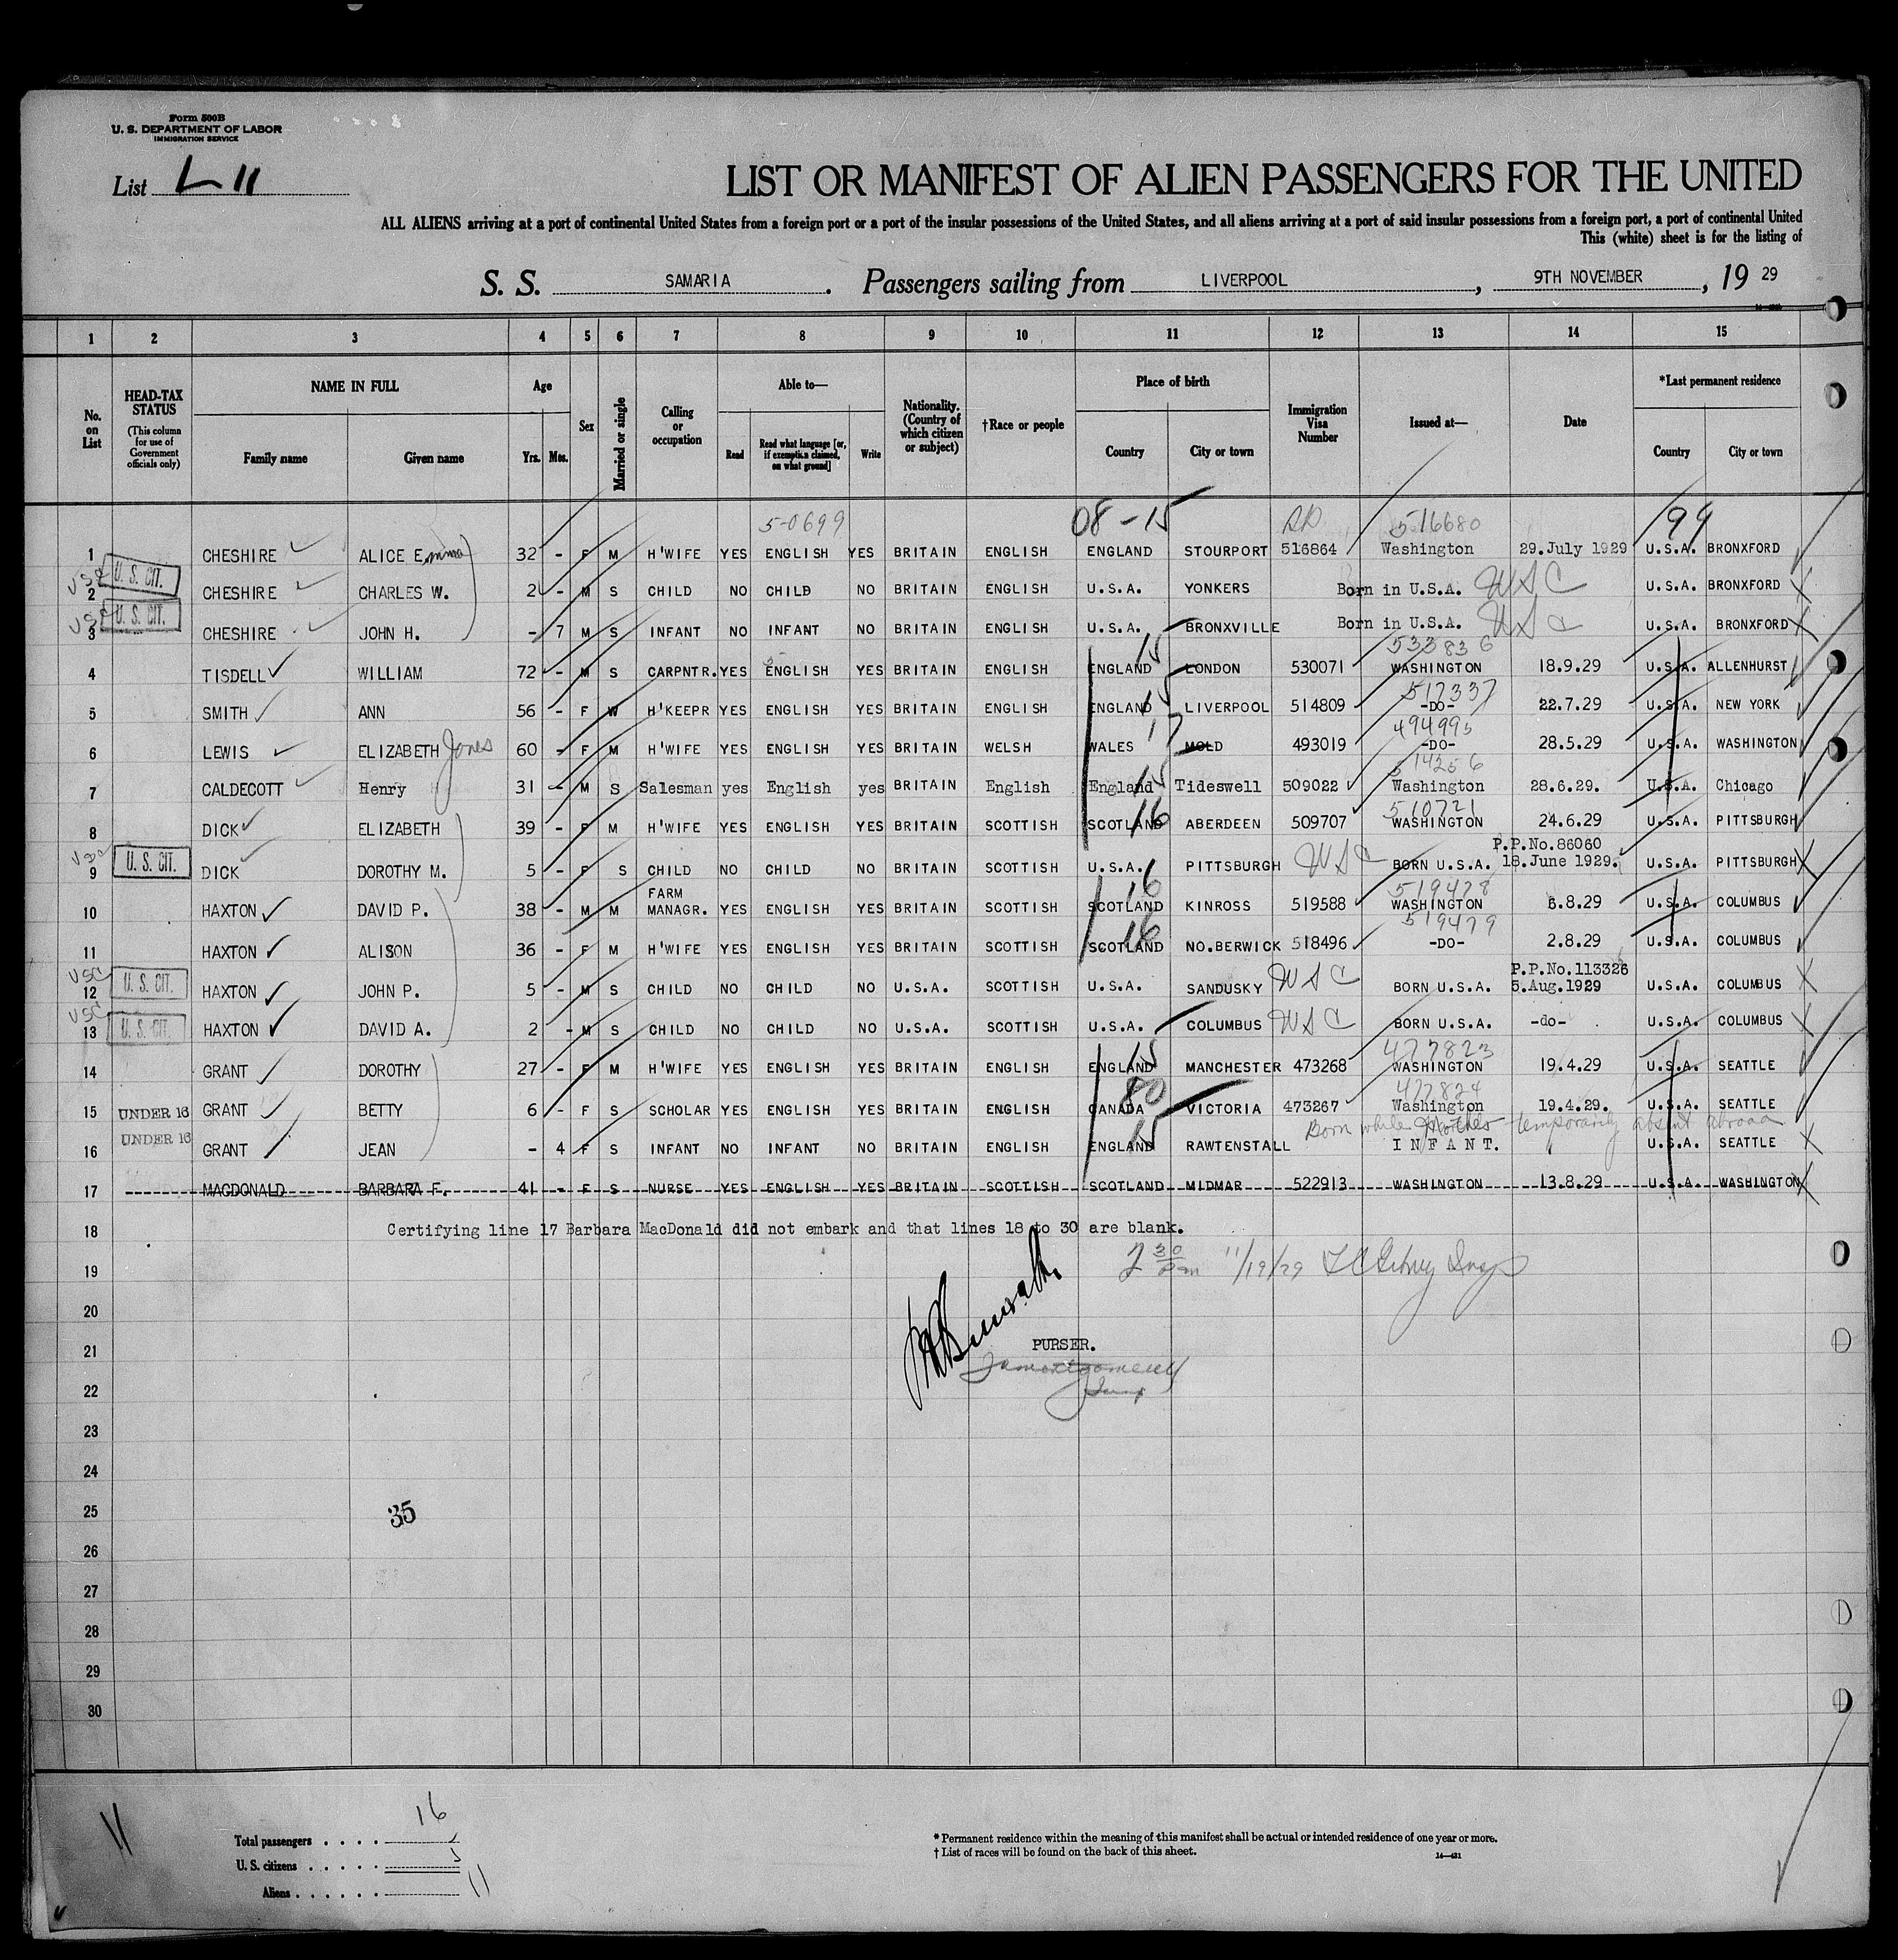 Form 500B
U. S. DEPARTMENT OF LABOR
IMMIGRATION SERVICE
List L 11
LIST OR MANIFEST OF ALIEN PASSENGERS FOR THE UNITED
ALL ALIENS arriving at a port of continental United States from a foreign port or a port of the insular possessions of the United States, and all aliens arriving at a port of said insular possessions from a foreign port, a port of continental United
This (white) sheet is for the listing of
S. S. SAMARIA. Passengers sailing from LIVERPOOL, 9TH NOVEMBER, 19 29
1 2 3 4 5 6 7 8 9 10 11 12 13 14 15
No. on List HEAD-TAX STATUS (This column for use of Government officials only) NAME IN FULL Family name Given name Age Yrs. Mos. Sex Married or single Calling or occupation Able to— Read Read what language [or, if exemption claimed, on what ground] Write Nationality. (Country of which citizen or subject) †Race or people Place of birth Country City or town Immigration Visa Number Issued at— Date *Last permanent residence Country City or town
5-0699 08-15 516680 99
1 CHESHIRE ALICE Emma 32 - F M H'WIFE YES ENGLISH YES BRITAIN ENGLISH ENGLAND STOURPORT 516864 Washington 29.July 1929 U.S.A. BRONXFORD
USC U. S. CIT.
2 CHESHIRE CHARLES W. 2 - M S CHILD NO CHILD NO BRITAIN ENGLISH U.S.A. YONKERS Born in U.S.A. USC U.S.A. BRONXFORD
USC U. S. CIT.
3 CHESHIRE JOHN H. - 7 M S INFANT NO INFANT NO BRITAIN ENGLISH U.S.A. BRONXVILLE Born in U.S.A. USC U.S.A. BRONXFORD
15 533836
4 TISDELL WILLIAM 72 - M S CARPNTR. YES ENGLISH YES BRITAIN ENGLISH ENGLAND LONDON 530071 WASHINGTON 18.9.29 U.S.A. ALLENHURST
15 517337
5 SMITH ANN 56 - F W H'KEEPR YES ENGLISH YES BRITAIN ENGLISH ENGLAND LIVERPOOL 514809 -DO- 22.7.29 U.S.A. NEW YORK
17 494995
6 LEWIS ELIZABETH Jones 60 - F M H'WIFE YES ENGLISH YES BRITAIN WELSH WALES MOLD 493019 -DO- 28.5.29 U.S.A. WASHINGTON
15 514256
7 CALDECOTT Henry 31 - M S Salesman yes English yes BRITAIN English England Tideswell 509022 Washington 28.6.29. U.S.A. Chicago
16 510721
8 DICK ELIZABETH 39 - F M H'WIFE YES ENGLISH YES BRITAIN SCOTTISH SCOTLAND ABERDEEN 509707 WASHINGTON 24.6.29 U.S.A. PITTSBURGH
P.P.No.86060
USC U. S. CIT.
9 DICK DOROTHY M. 5 - F S CHILD NO CHILD NO BRITAIN SCOTTISH U.S.A. PITTSBURGH USC BORN U.S.A. 18.June 1929. U.S.A. PITTSBURGH
FARM 16 519478
10 HAXTON DAVID P. 38 - M M MANAGR. YES ENGLISH YES BRITAIN SCOTTISH SCOTLAND KINROSS 519588 WASHINGTON 6.8.29 U.S.A. COLUMBUS
16 519479
11 HAXTON ALISON 36 - F M H'WIFE YES ENGLISH YES BRITAIN SCOTTISH SCOTLAND NO.BERWICK 518496 -DO- 2.8.29 U.S.A. COLUMBUS
P.P.No.113326
USC U. S. CIT.
12 HAXTON JOHN P. 5 - M S CHILD NO CHILD NO U.S.A. SCOTTISH U.S.A. SANDUSKY USC BORN U.S.A. 5.Aug.1929 U.S.A. COLUMBUS
USC U. S. CIT.
13 HAXTON DAVID A. 2 - M S CHILD NO CHILD NO U.S.A. SCOTTISH U.S.A. COLUMBUS USC BORN U.S.A. -do- U.S.A. COLUMBUS
15 477823
14 GRANT DOROTHY 27 - F M H'WIFE YES ENGLISH YES BRITAIN ENGLISH ENGLAND MANCHESTER 473268 WASHINGTON 19.4.29 U.S.A. SEATTLE
80 477824
15 UNDER 16 GRANT BETTY 6 - F S SCHOLAR YES ENGLISH YES BRITAIN ENGLISH CANADA VICTORIA 473267 Washington 19.4.29. U.S.A. SEATTLE
15 Born while Mother temporarily absent abroad
16 UNDER 16 GRANT JEAN - 4 F S INFANT NO INFANT NO BRITAIN ENGLISH ENGLAND RAWTENSTALL INFANT. U.S.A. SEATTLE
17 MACDONALD BARBARA F. 41 - F S NURSE YES ENGLISH YES BRITAIN SCOTTISH SCOTLAND MIDMAR 522913 WASHINGTON 13.8.29 U.S.A. WASHINGTON
18 Certifying line 17 Barbara MacDonald did not embark and that lines 18 to 30 are blank.
19 2 30 pm 11/19/29
20
21 PURSER.
22
23
24
25 35
26
27
28
29
30
11
Total passengers .... 16
U. S. citizens ..... 5
Aliens ...... 11
* Permanent residence within the meaning of this manifest shall be actual or intended residence of one year or more.
† List of races will be found on the back of this sheet.
14—431